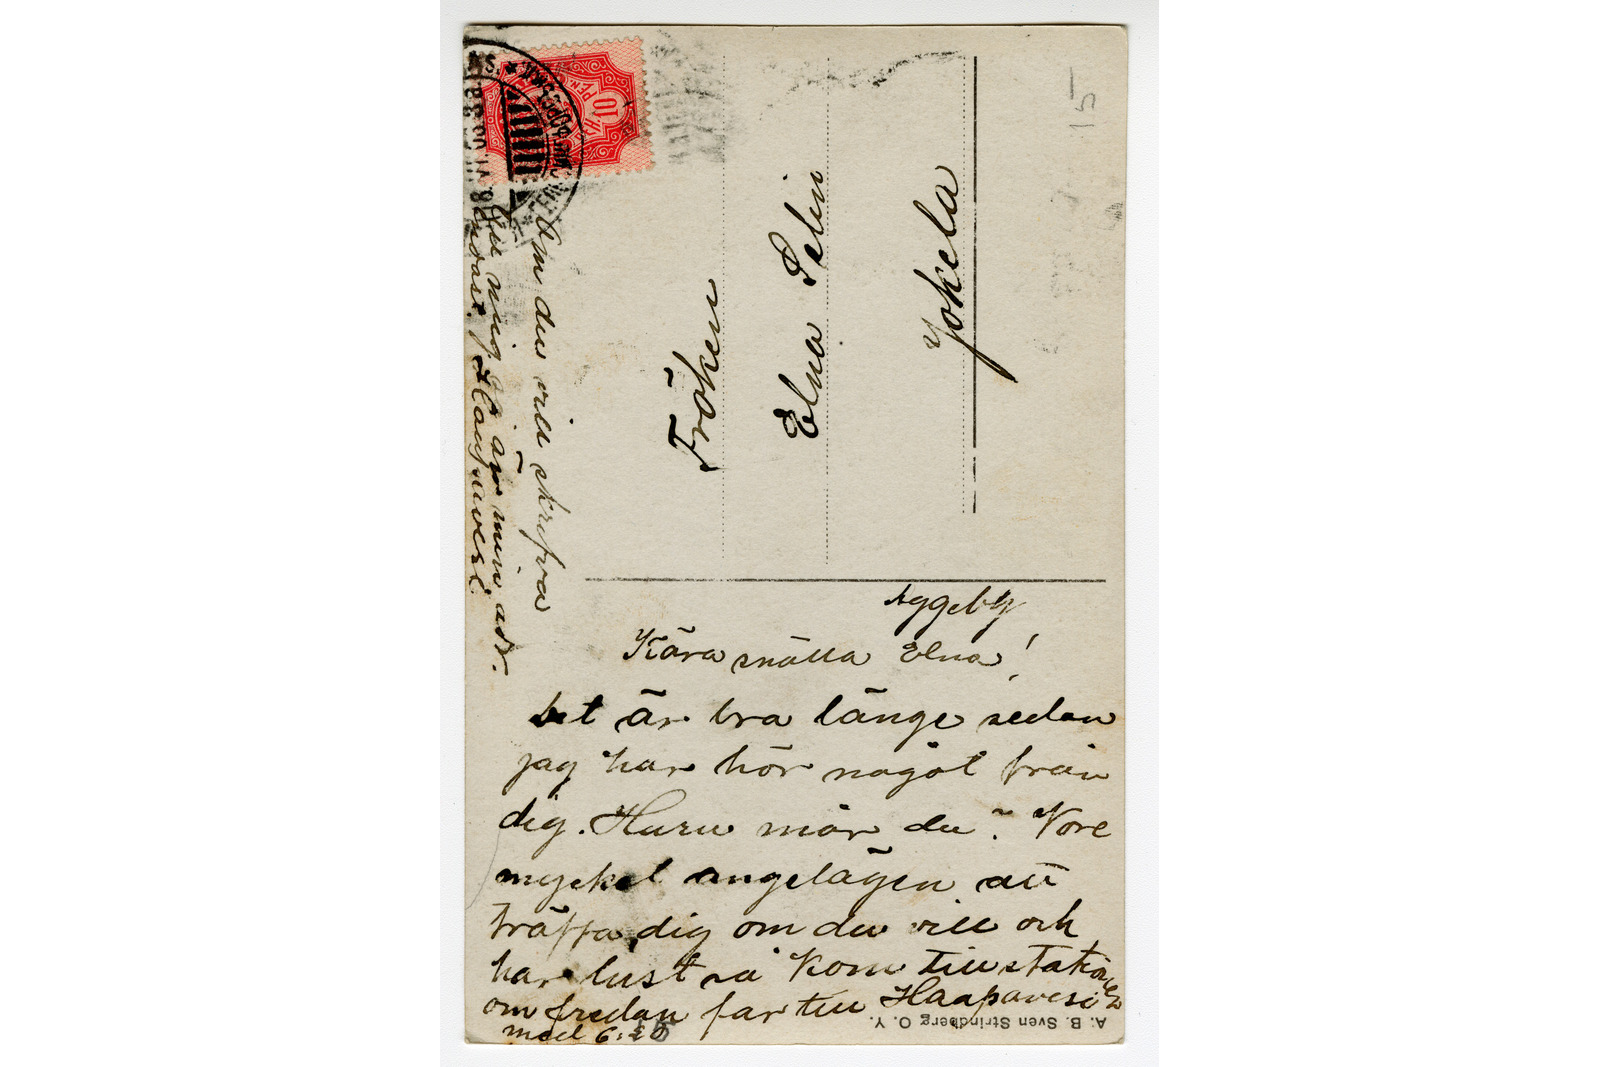 Fröken
Elna Selin
Jokela
Åggelby
Kära snälla Elna!
Det är bra länge sedan
jag har hör något från
dig. Huru mår du? Vore
mycket angelägen att
träffa dig om du vill och
har lust så kom till stationen
om fredan far till Haapavesi
med 6:20
Om du vill skrifva
till mig är min adr.
Haapavesi
A. B. Sven Strindberg O. Y.
10
PEN.
15